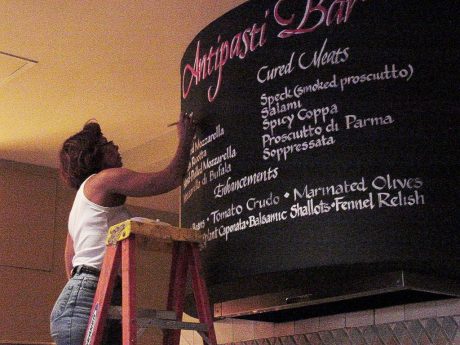 Antipasti Bar
Cured Meats
Speck (smoked prosciutto)
Salami
Spicy Coppa
Prosciutto di Parma
Soppressata
Mozzarella
Ricotta
Mozzarella
di Bufala
Enhancements
Beans • Tomato Crudo • Marinated Olives
Caponata • Balsamic Shallots • Fennel Relish